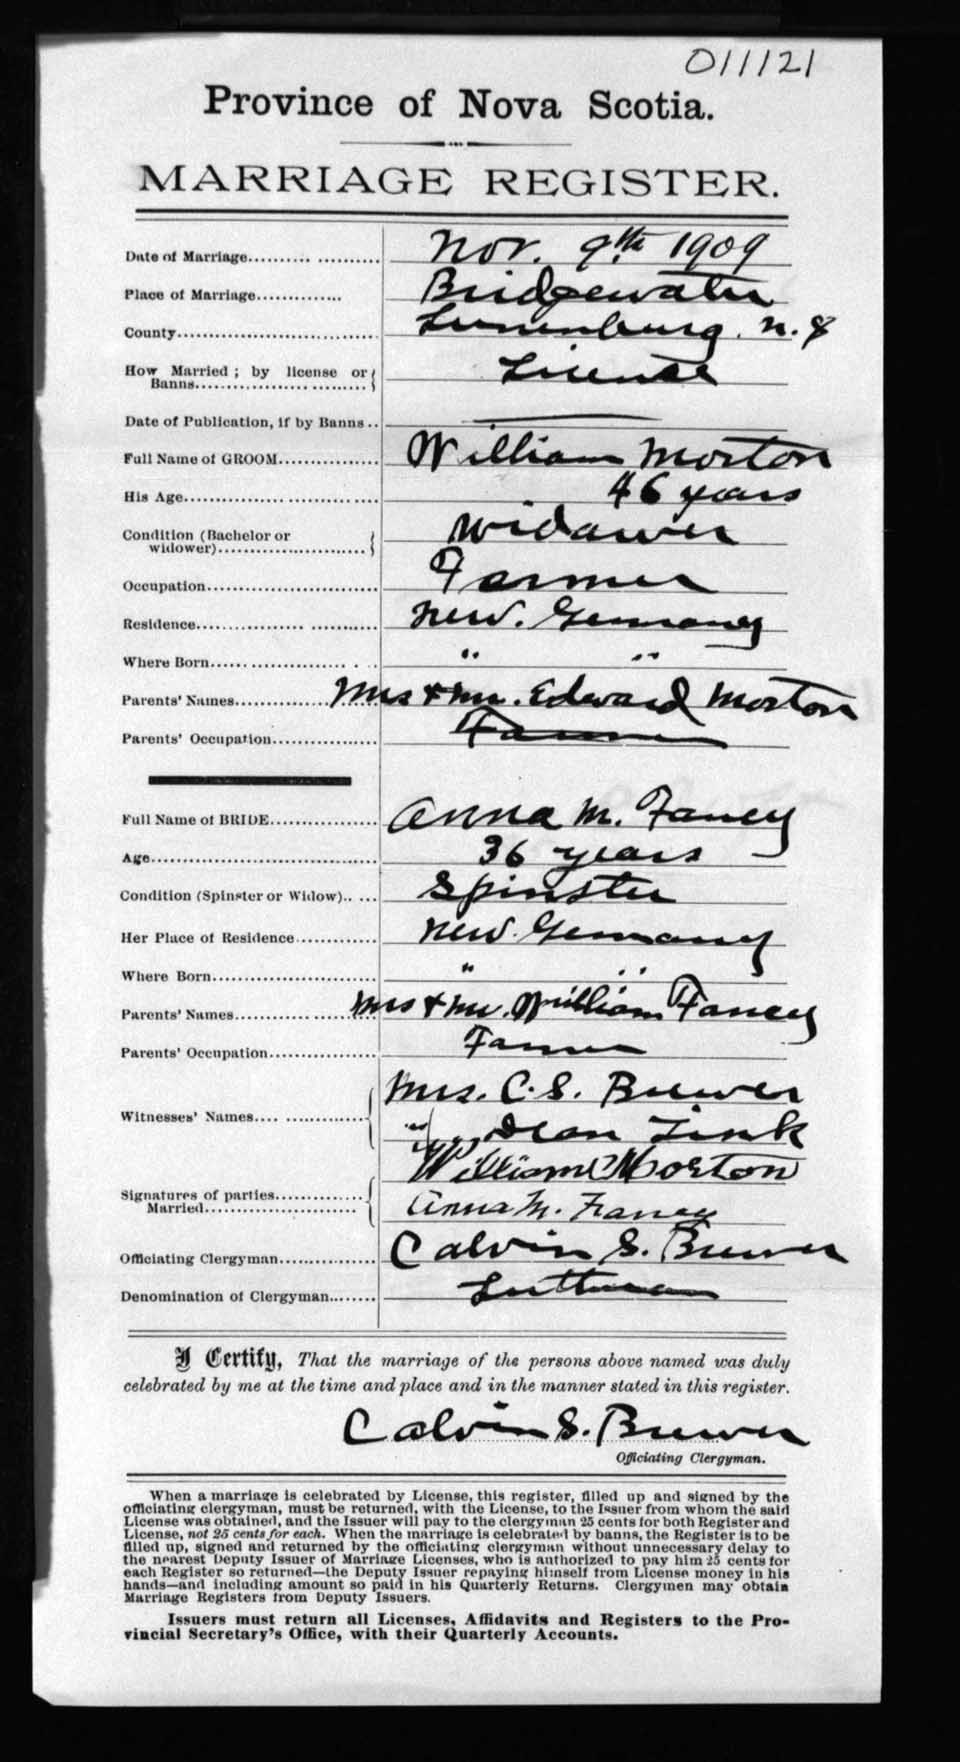 011121
Province of Nova Scotia.
MARRIAGE REGISTER.
Date of Marriage.......... ........... Nov. 9th. 1909
Place of Marriage.............. Bridgewater
County.............................. Lunenburg. N. S
How Married ; by license or
Banns.................. ......... License
Date of Publication, if by Banns .. ——
Full Name of GROOM................ William Morton
His Age.......................... .... 46 years
Condition (Bachelor or
widower)......................... Widower
Occupation............................. Farmer
Residence.................. ........... New. Germany
Where Born...... ................ . .. " "
Parents' Names.................. Mrs & Mr. Edward Morton
Parents' Occupation.................. Farmer
Full Name of BRIDE................. Anna M. Fancy
Age....................................... 36 years
Condition (Spinster or Widow).. ... Spinster
Her Place of Residence............. New. Germany
Where Born............................ " "
Parents' Names............ ...... Mrs & Mr. William Fancy
Parents' Occupation.................. Farmer
Mrs. C. S. Brewer
Witnesses' Names.... ..............
" Dean Zink
William Morton
Signatures of parties..............
Married.......................... Anna M. Fancy
Officiating Clergyman................ Calvin S. Brewer
Denomination of Clergyman........ Lutheran
I Certify, That the marriage of the persons above named was duly
celebrated by me at the time and place and in the manner stated in this register.
Calvin S. Brewer
Officiating Clergyman.
When a marriage is celebrated by License, this register, filled up and signed by the
officiating clergyman, must be returned, with the License, to the Issuer from whom the said
License was obtained, and the Issuer will pay to the clergyman 25 cents for both Register and
License, not 25 cents for each. When the marriage is celebrated by banns, the Register is to be
filled up, signed and returned by the officiating clergyman without unnecessary delay to
the nearest Deputy Issuer of Marriage Licenses, who is authorized to pay him 25 cents for
each Register so returned—the Deputy Issuer repaying himself from License money in his
hands—and including amount so paid in his Quarterly Returns. Clergymen may obtain
Marriage Registers from Deputy Issuers.
Issuers must return all Licenses, Affidavits and Registers to the Pro-
vincial Secretary's Office, with their Quarterly Accounts.